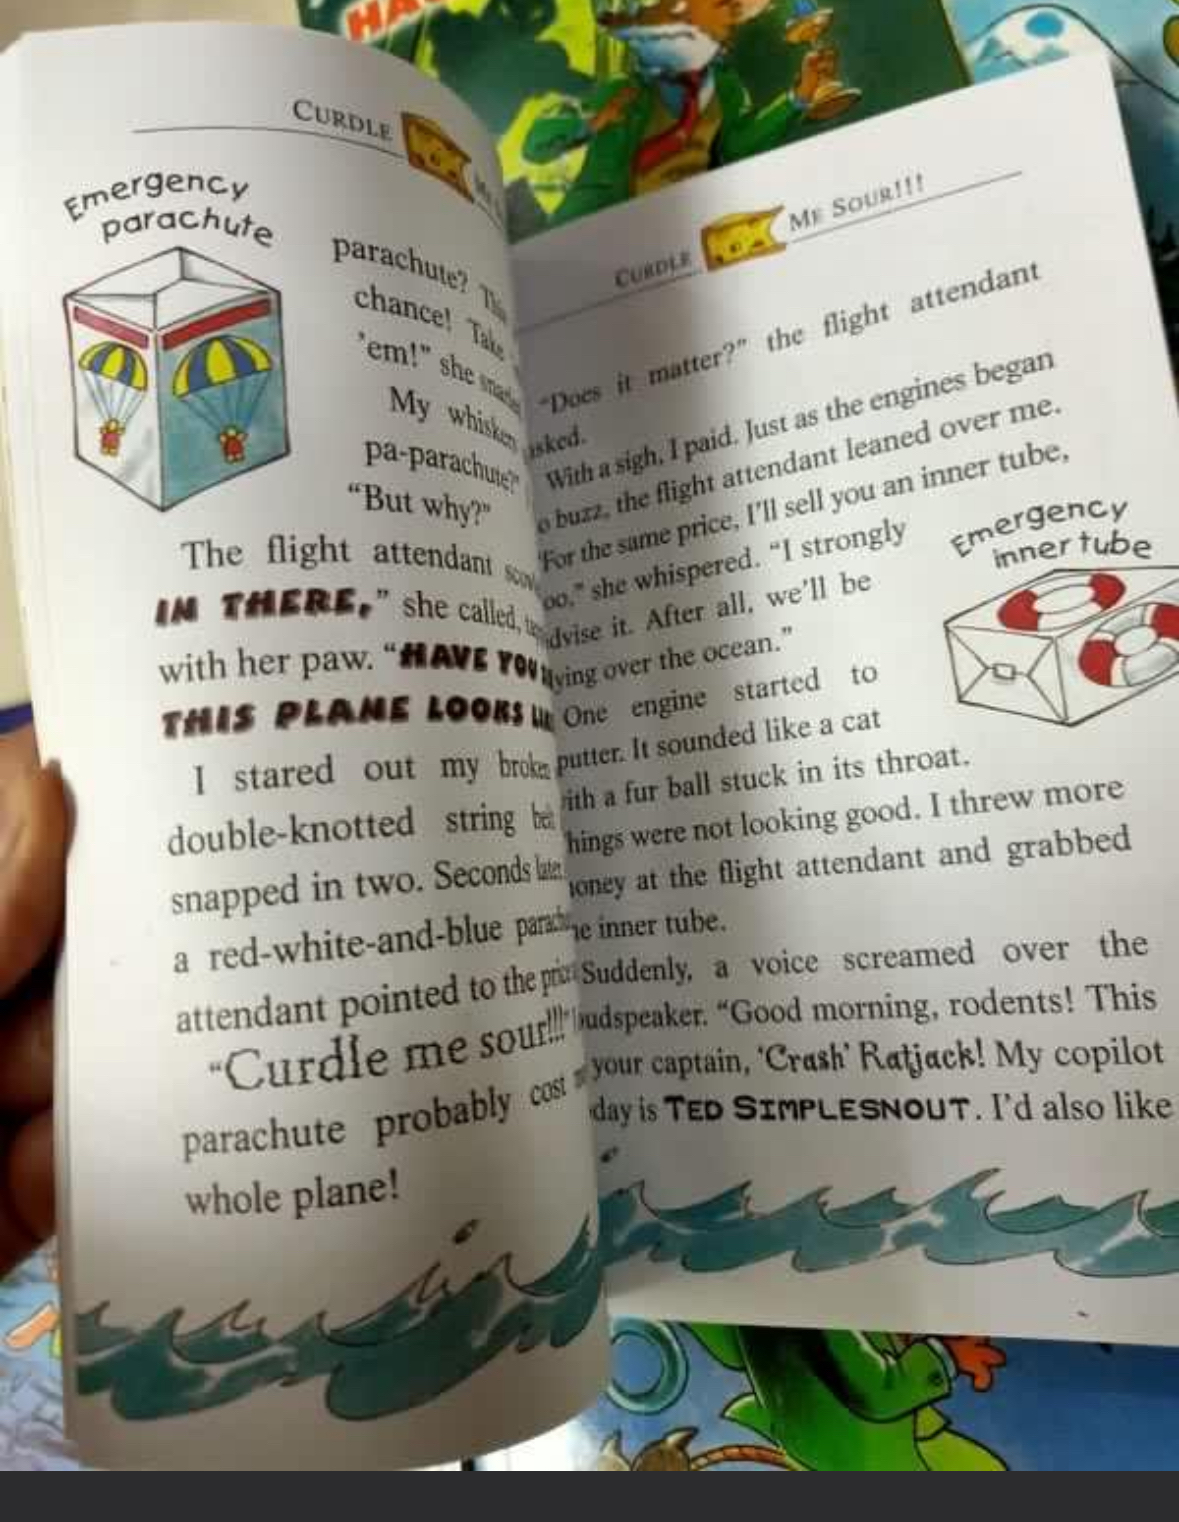 HA
CURDLE
Emergency
parachute
parachute?
chance! Take
'em!" she
My whiskers
pa-parachute?"
"But why?"
The flight attendant
IN THERE," she called,
with her paw. "HAVE YOU
THIS PLANE LOOKS
I stared out my broken
double-knotted string
snapped in two. Seconds later,
a red-white-and-blue
attendant pointed to the
"Curdle me sour!!!"
parachute probably cost
whole plane!
CURDLE ME SOUR!!!
"Does it matter?" the flight attendant
asked.
With a sigh, I paid. Just as the engines began
buzz, the flight attendant leaned over me.
"For the same price, I'll sell you an inner tube,
she whispered. "I strongly
it. After all, we'll be
over the ocean."
Emergency
inner tube
One engine started to
It sounded like a cat
a fur ball stuck in its throat.
were not looking good. I threw more
at the flight attendant and grabbed
inner tube.
Suddenly, a voice screamed over the
"Good morning, rodents! This
your captain, 'Crash' Ratjack! My copilot
is TED SIMPLESNOUT. I'd also like